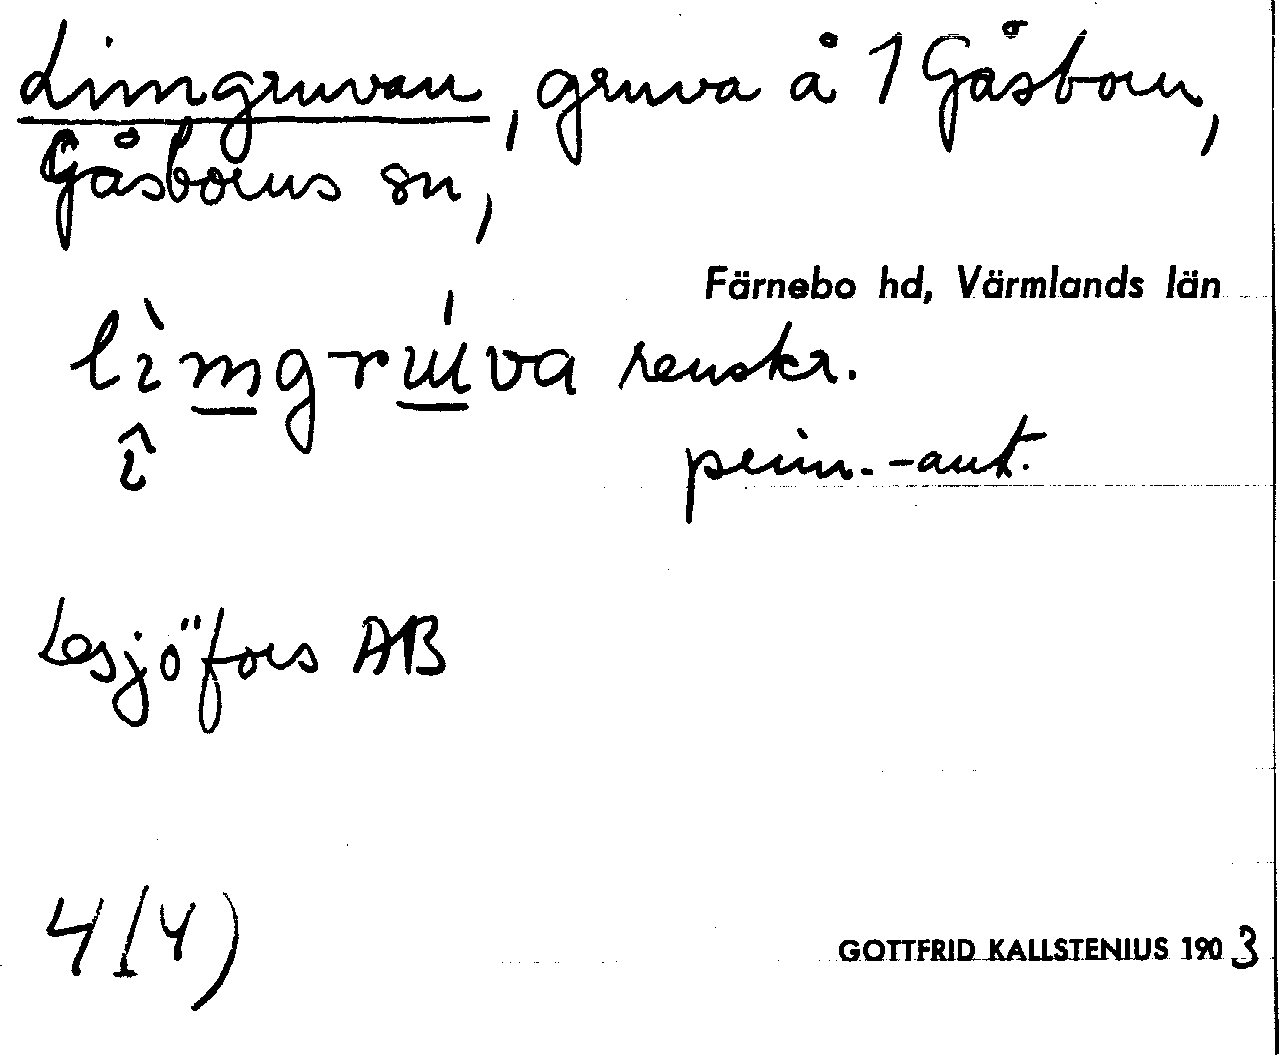 Limgruvan, gruva å 1 Gåsborn,
Gåsborns sn,
Färnebo hd, Värmlands län
lìmgrúva renskr.
î
Lesjöfors AB
4(4)
GOTTFRID KALLSTENIUS 1903